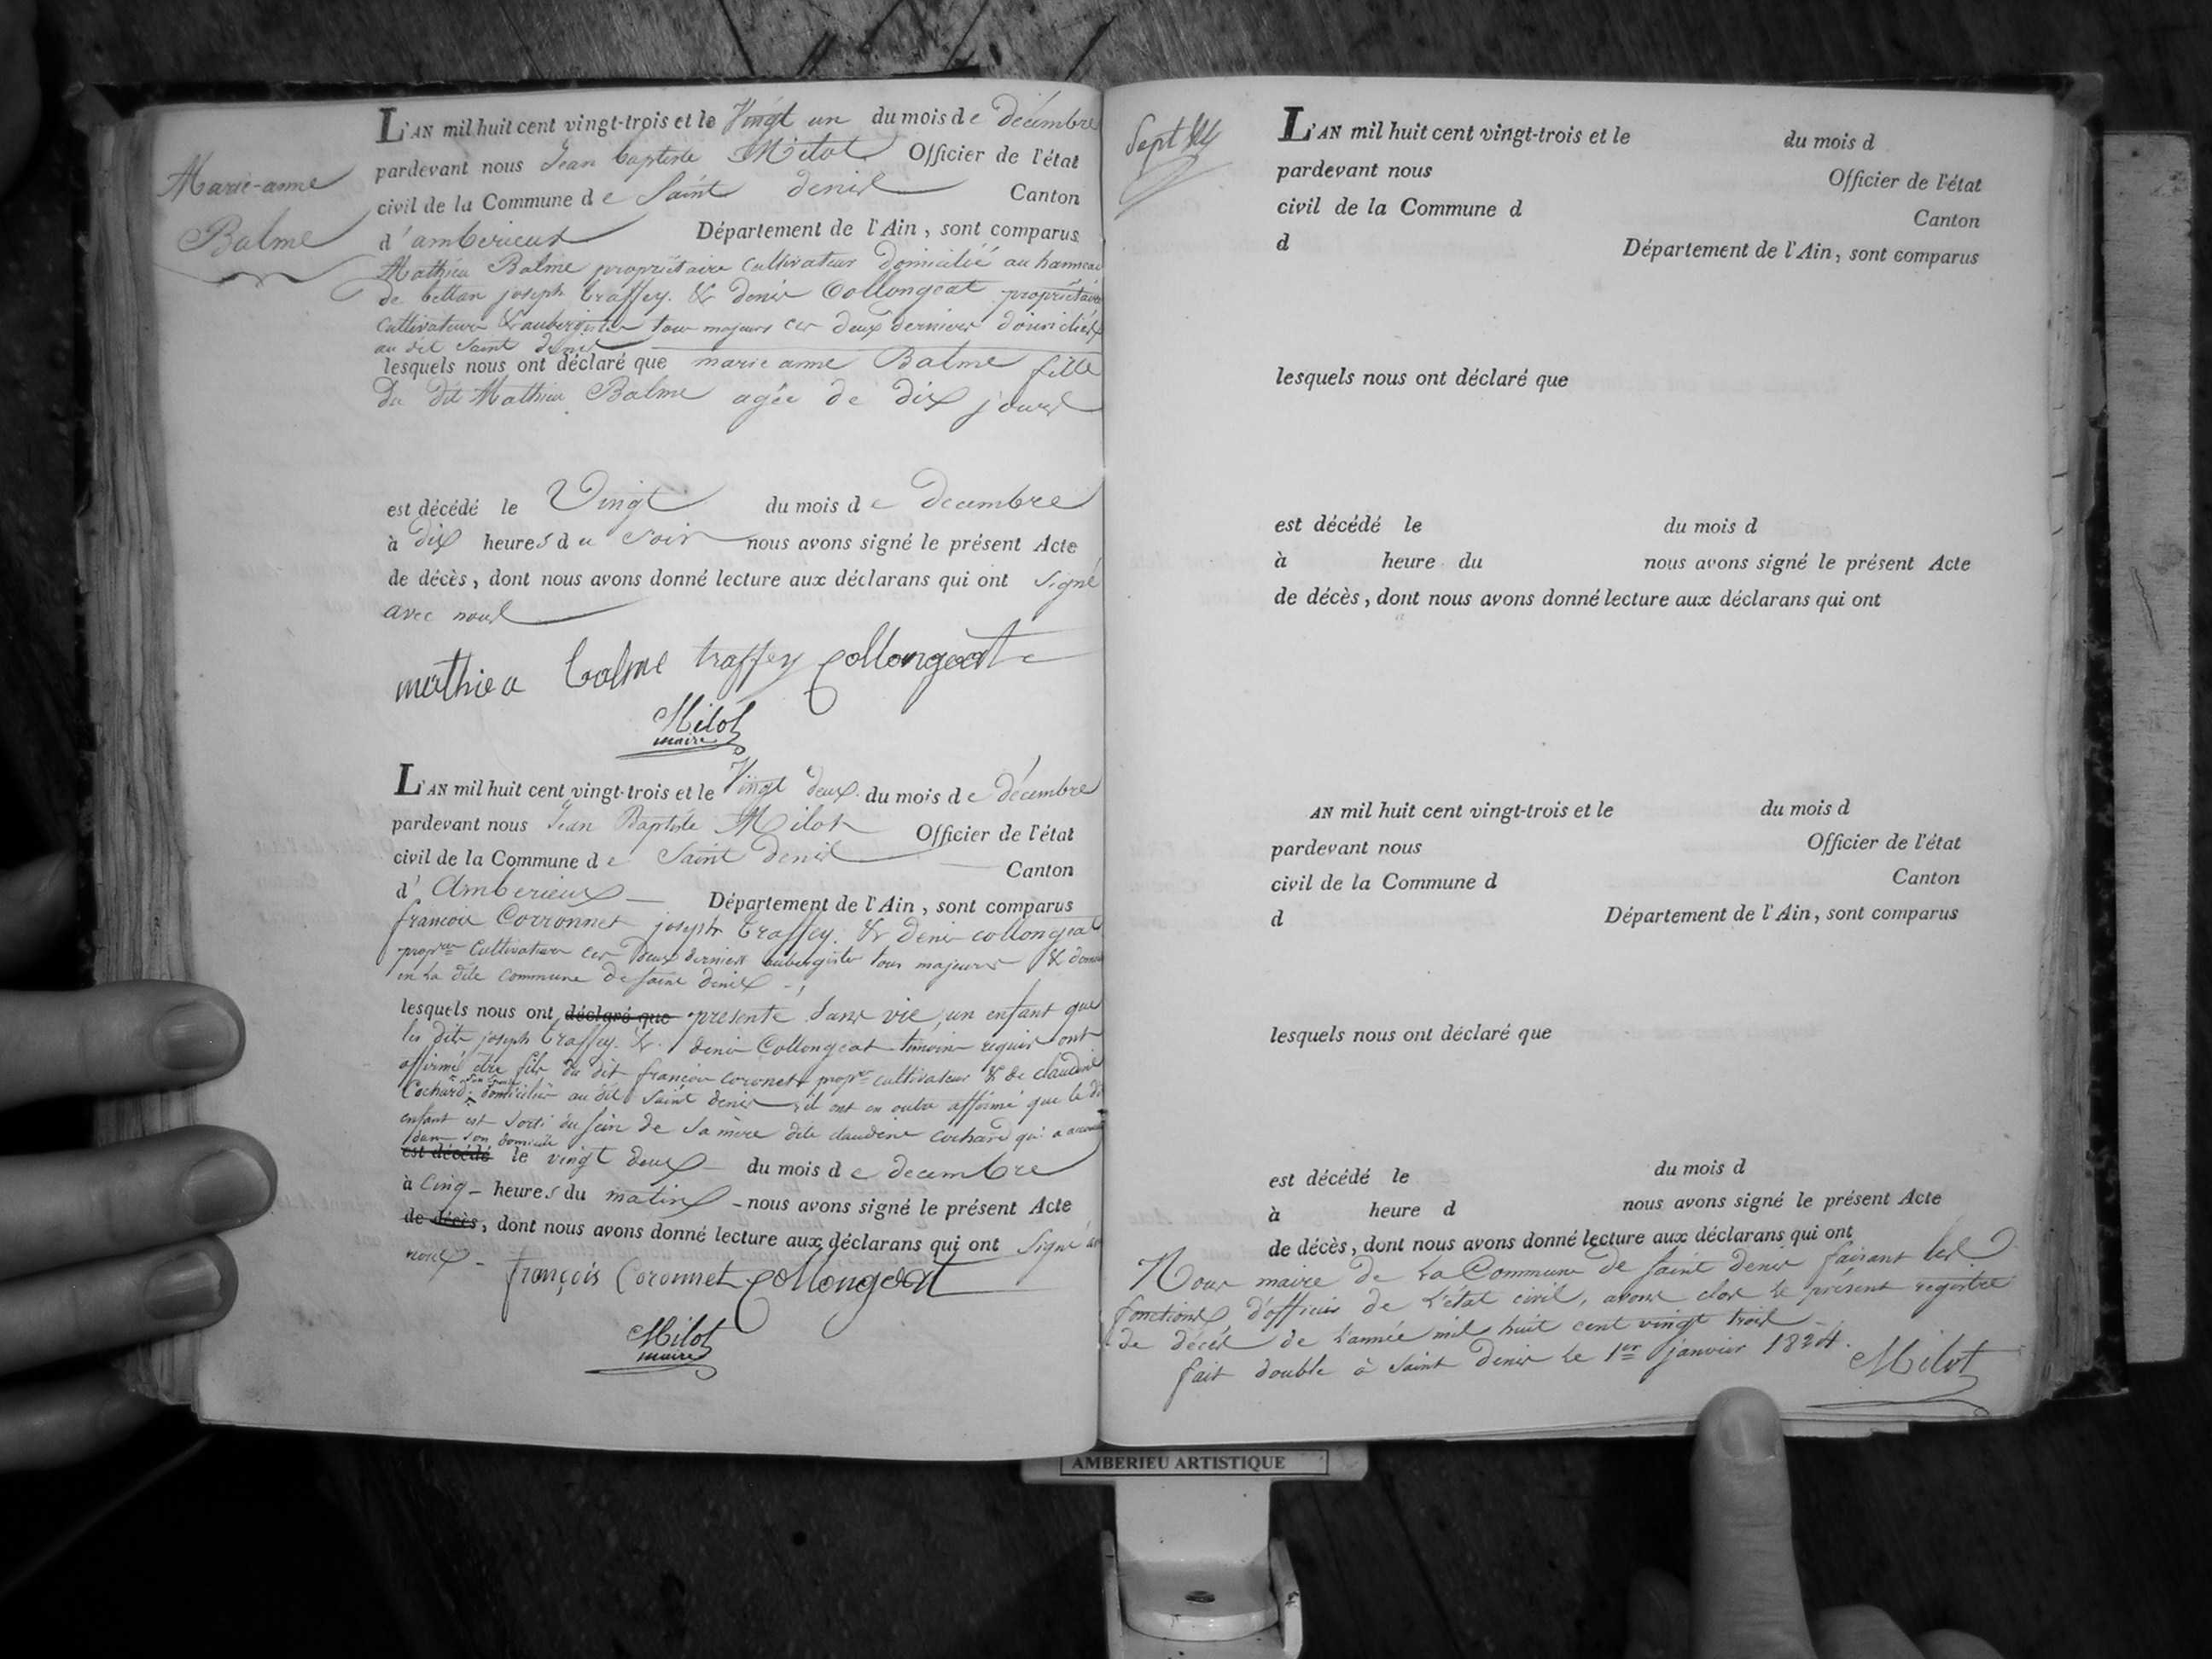 Marie-anne
Balme
L'AN mil huit cent vingt-trois et le Vingt un du mois de décembre
pardevant nous Jean baptiste Milot Officier de l'état
civil de la Commune de Saint denis Canton
d'amberieux Département de l'Ain, sont comparus
Mathieu Balme propriétaire cultivateur domicilié au hameau
de bettan joseph traffey. & denis Collongeat propriétaires
cultivateurs & aubergistes tous majeurs ces deux derniers domiciliés
au dit Saint denis
lesquels nous ont déclaré que marie anne Balme fille
du dit Mathieu Balme agée de dix jours
est décédé le Vingt du mois de decembre
à dix heures du soir nous avons signé le présent Acte
de décès, dont nous avons donné lecture aux déclarans qui ont signé
avec nous
mathieu balme traffey Collongeat
Milot
maire
L'AN mil huit cent vingt-trois et le Vingt deux du mois de décembre
pardevant nous Jean Baptiste Milot Officier de l'état
civil de la Commune de Saint denis Canton
d'Amberieux Département de l'Ain, sont comparus
francois Corronnet joseph traffey. & denis collongeat
propres cultivateurs ces deux derniers aubergistes tous majeurs &
en la dite commune de saint denis
lesquels nous ont déclaré que presenté sans vie, un enfant que
les dits joseph traffey. & denis Collongeat temoins requis ont
affirmé etre fils du dit francois coronnet propre cultivateur & de claudine
Cochard son épouse domiciliés au dit Saint denis, ils ont en outre affirmé que le dit
enfant est sorti du sein de sa mère dite claudine cochard qui a
dans son domicile
est décédé le vingt deux du mois de decembre
à cinq heures du matin nous avons signé le présent Acte
de décès, dont nous avons donné lecture aux déclarans qui ont signé
nous
françois Coronnet Collongeat
Milot
maire
Sept
L'AN mil huit cent vingt-trois et le du mois d
pardevant nous Officier de l'état
civil de la Commune d Canton
d Département de l'Ain, sont comparus
lesquels nous ont déclaré que
est décédé le du mois d
à heure du nous avons signé le présent Acte
de décès, dont nous avons donné lecture aux déclarans qui ont
AN mil huit cent vingt-trois et le du mois d
pardevant nous Officier de l'état
civil de la Commune d Canton
d Département de l'Ain, sont comparus
lesquels nous ont déclaré que
est décédé le du mois d
à heure d nous avons signé le présent Acte
de décès, dont nous avons donné lecture aux déclarans qui ont
Nous maire de la Commune de saint denis faisant les
fonctions d'officier de l'état civil, avons clos le présent registre
de décès de l'année mil huit cent vingt trois
fait double à saint denis le 1er janvier 1824.
Milot
AMBERIEU ARTISTIQUE